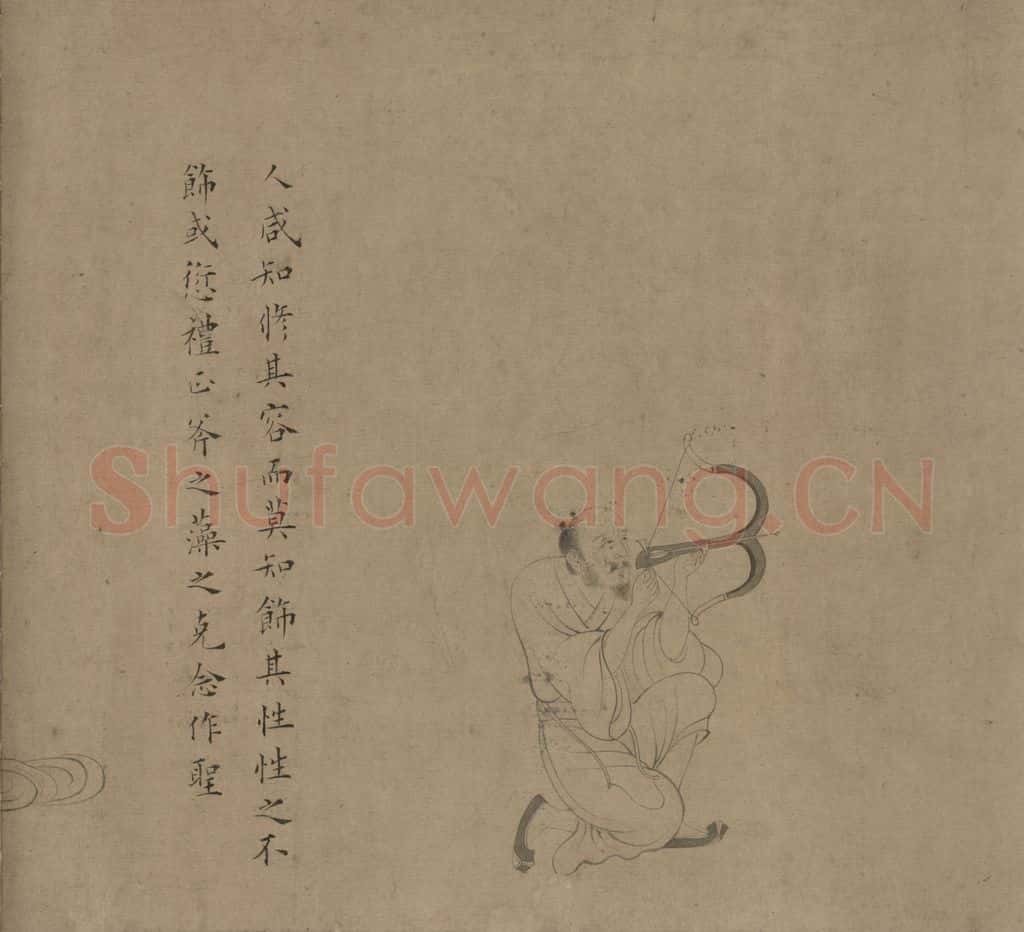 人咸知修其容而莫知飾其性性之不
飾或愆禮正斧之藻之克念作聖
Shufawang.CN